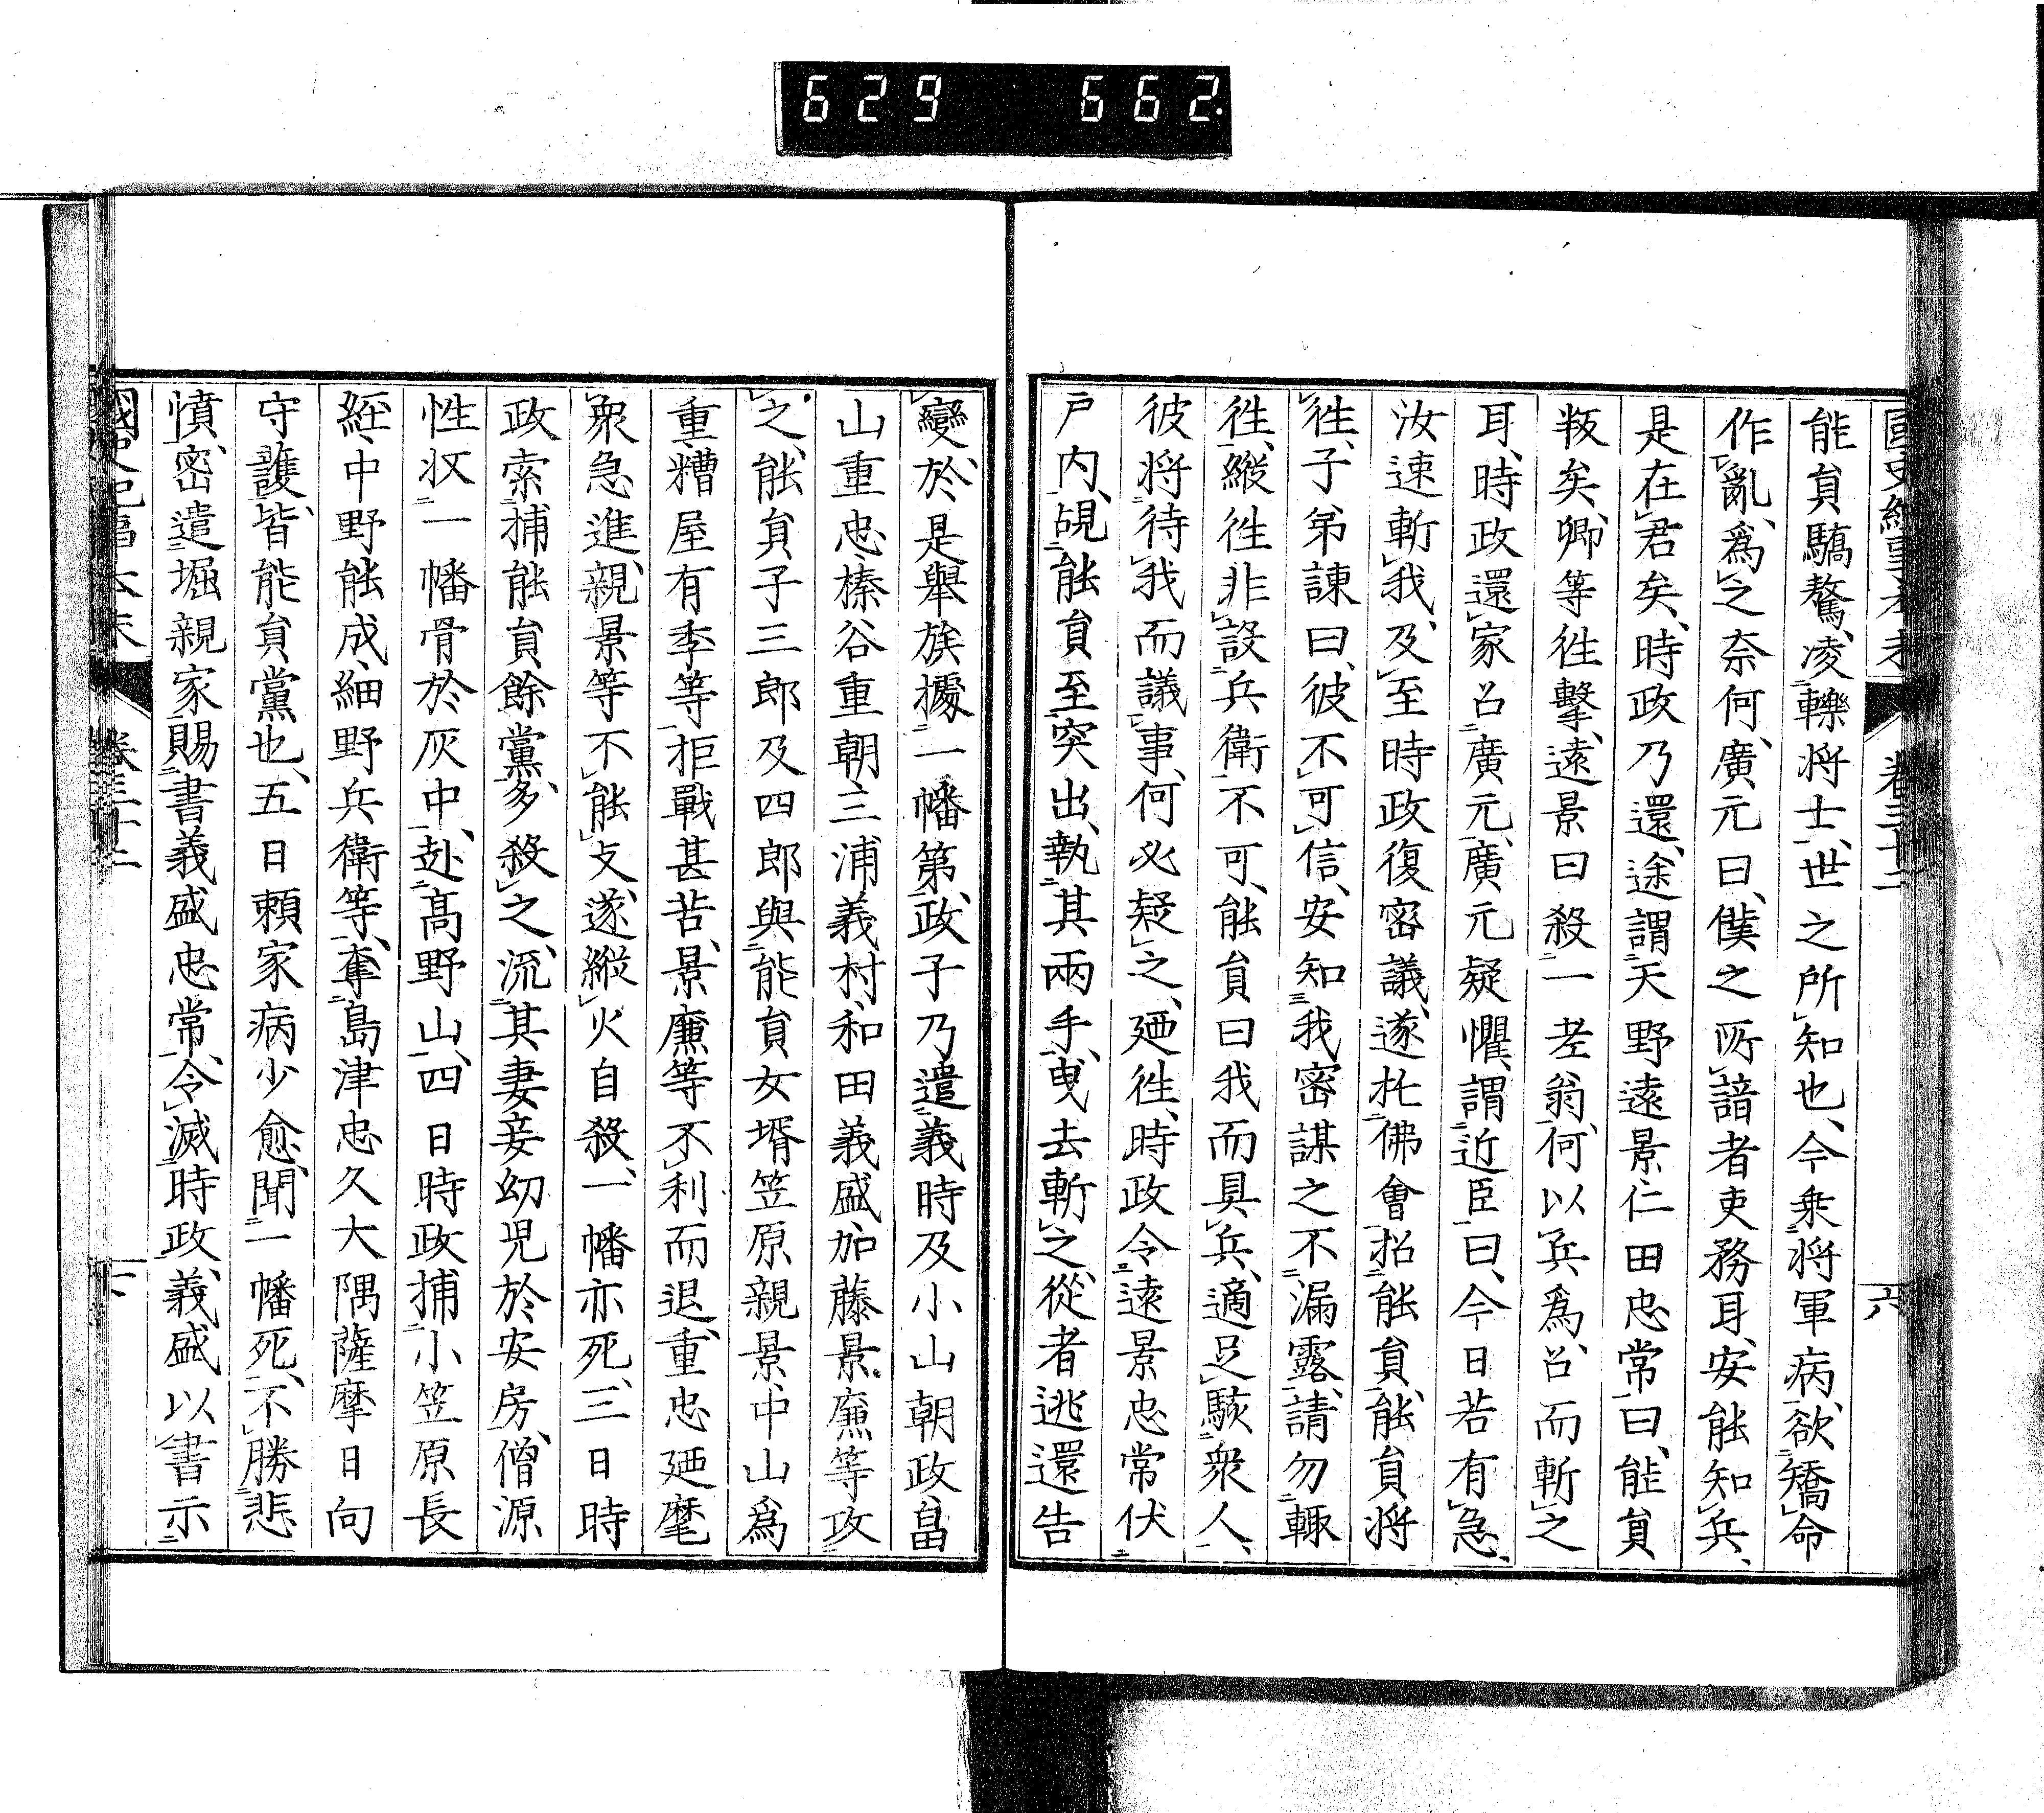 629 662
國史紀事本末 卷三十二 六
能員驕驁、凌轢將士、世之所知也、今乘將軍病、欲矯命
作亂、爲之奈何、廣元曰、僕之所諳者吏務耳、安能知兵、
是在君矣、時政乃還、途謂天野遠景仁田忠常曰、能員
叛矣、卿等往擊、遠景曰殺一老翁、何以兵爲、召而斬之
耳、時政還家召廣元、廣元疑懼、謂近臣曰、今日若有急、
汝速斬我、及至時政復密議、遂托佛會招能員、能員將
往、子弟諫曰、彼不可信、安知我密謀之不漏露、請勿輙
往、縱往非設兵衛不可、能員曰我而具兵、適足駭衆人、
彼將待我而議事、何必疑之、廼往、時政令遠景忠常伏
戸内、覘能員至突出、執其兩手、曳去斬之、從者逃還告
變、於是舉族據一幡第、政子乃遣義時及小山朝政畠
山重忠、榛谷重朝、三浦義村、和田義盛、加藤景廉等攻
之、能員子三郎及四郎與能員女壻笠原親景、中山爲
重、糟屋有季等拒戰甚苦、景廉等不利而退、重忠廼麾
衆急進、親景等不能支、遂縱火自殺、一幡亦死、三日時
政索捕能員餘黨、多殺之、流其妻妾幼兒於安房、僧源
性收一幡骨於灰中、赴高野山、四日時政捕小笠原長
經、中野能成、細野兵衛等、奪島津忠久大隅薩摩日向
守護、皆能員黨也、五日賴家病少愈、聞一幡死、不勝悲
憤、密遣堀親家賜書義盛忠常、令滅時政、義盛以書示
國史紀事本末 卷三十二